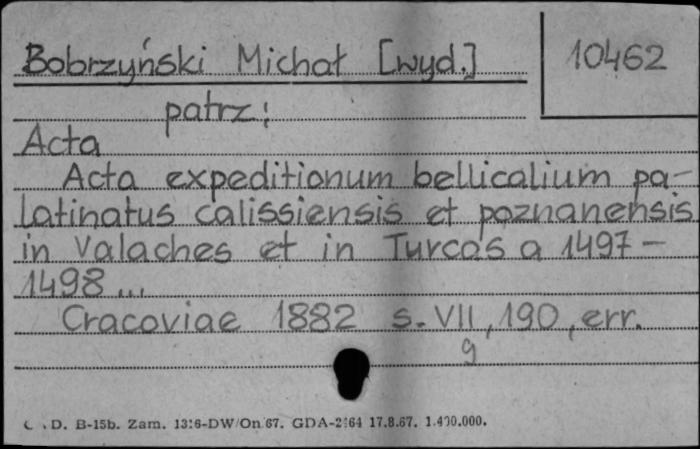 Bobrzyński Michał [wyd.]
10462
patrz:
Acta
Acta expeditionum bellicalium pa-
latinatus calissiensis et poznanensis
in Valaches et in Turcos a 1497-
1498...
Cracoviae 1882 s. VII, 190, err.
g
D. B-15b. Zam. 1316-DW/On/67. GDA-2/64 17.8.67. 1.400.000.